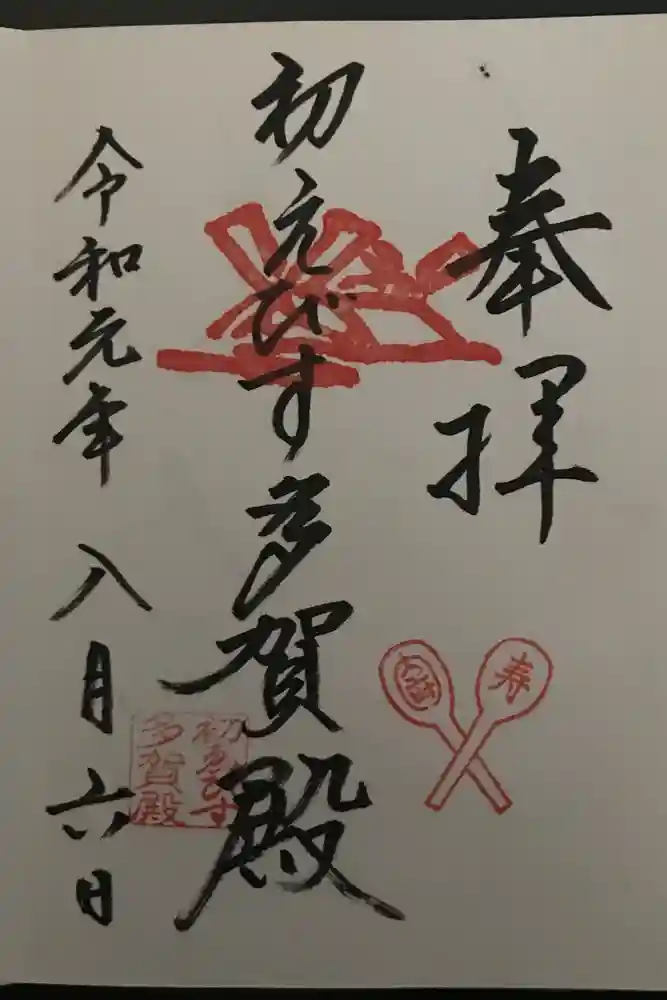 奉拝
初えびす多賀殿
令和元年 八月六日
寿
初ゑびす
多賀殿